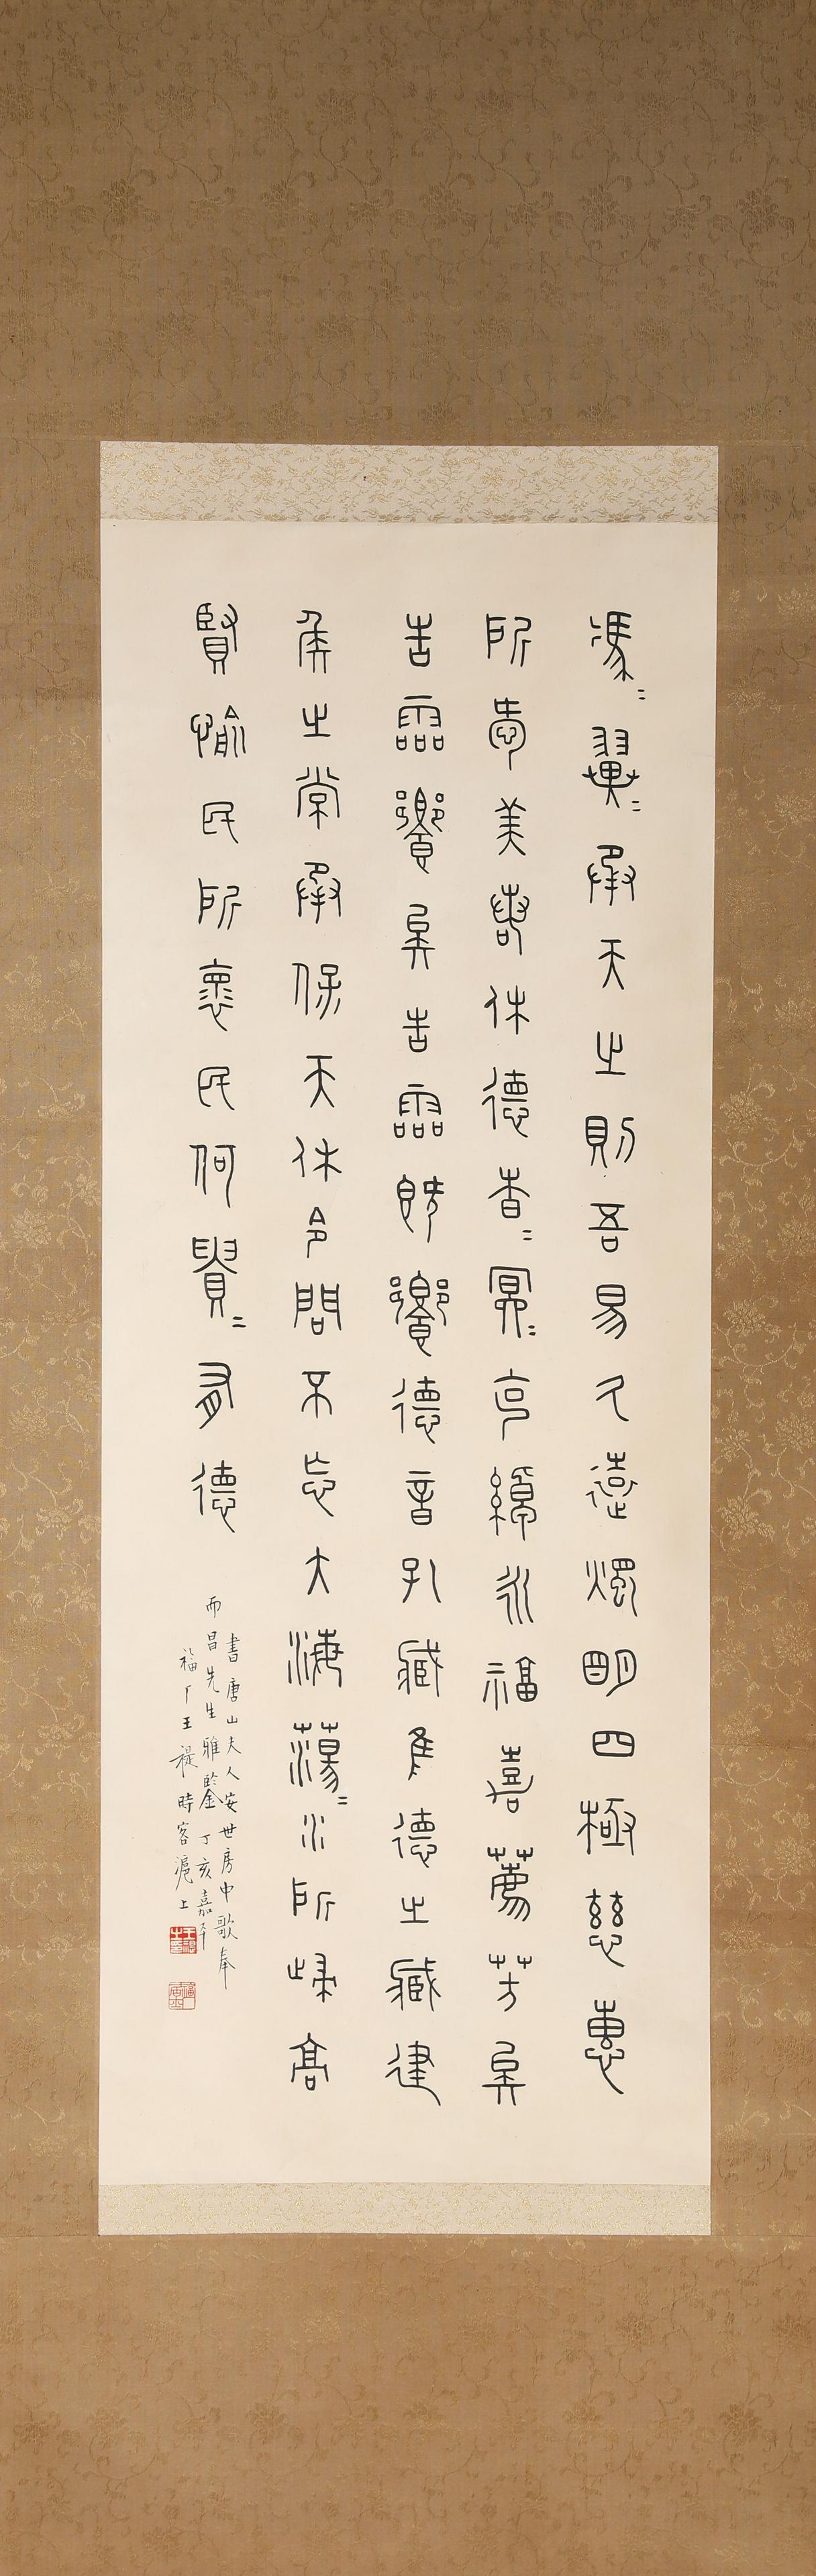 馮〻翼〻承天之則吾易久遠燭明四極慈惠
所愛美若休德杳〻冥〻克綽永福嘉薦芳矣
告靈饗矣告靈既饗德音孔臧隹德之臧建
侯之常承保天休令問不忘大海蕩〻水所歸高
賢愉民所懷民何貴〻有德
書唐山夫人安世房中歌奉
而昌先生雅鑒丁亥嘉平
福厂王禔時客滬上